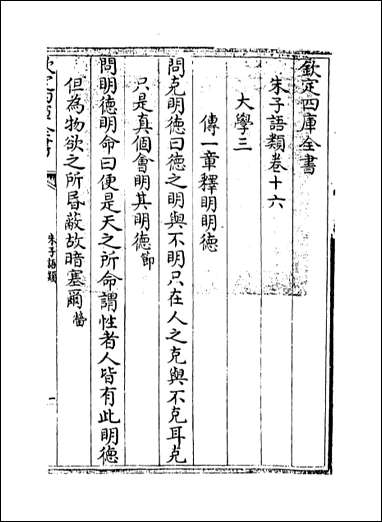 欽定四庫全書
朱子語類卷十六
大學三
傳一章釋明明德
問克明德曰德之明與不明只在人之克與不克耳克
只是真個會明其明德節
問明德明命曰便是天之所命謂性者人皆有此明德
但為物欲之所昏蔽故暗塞爾㽦
朱子語類
一